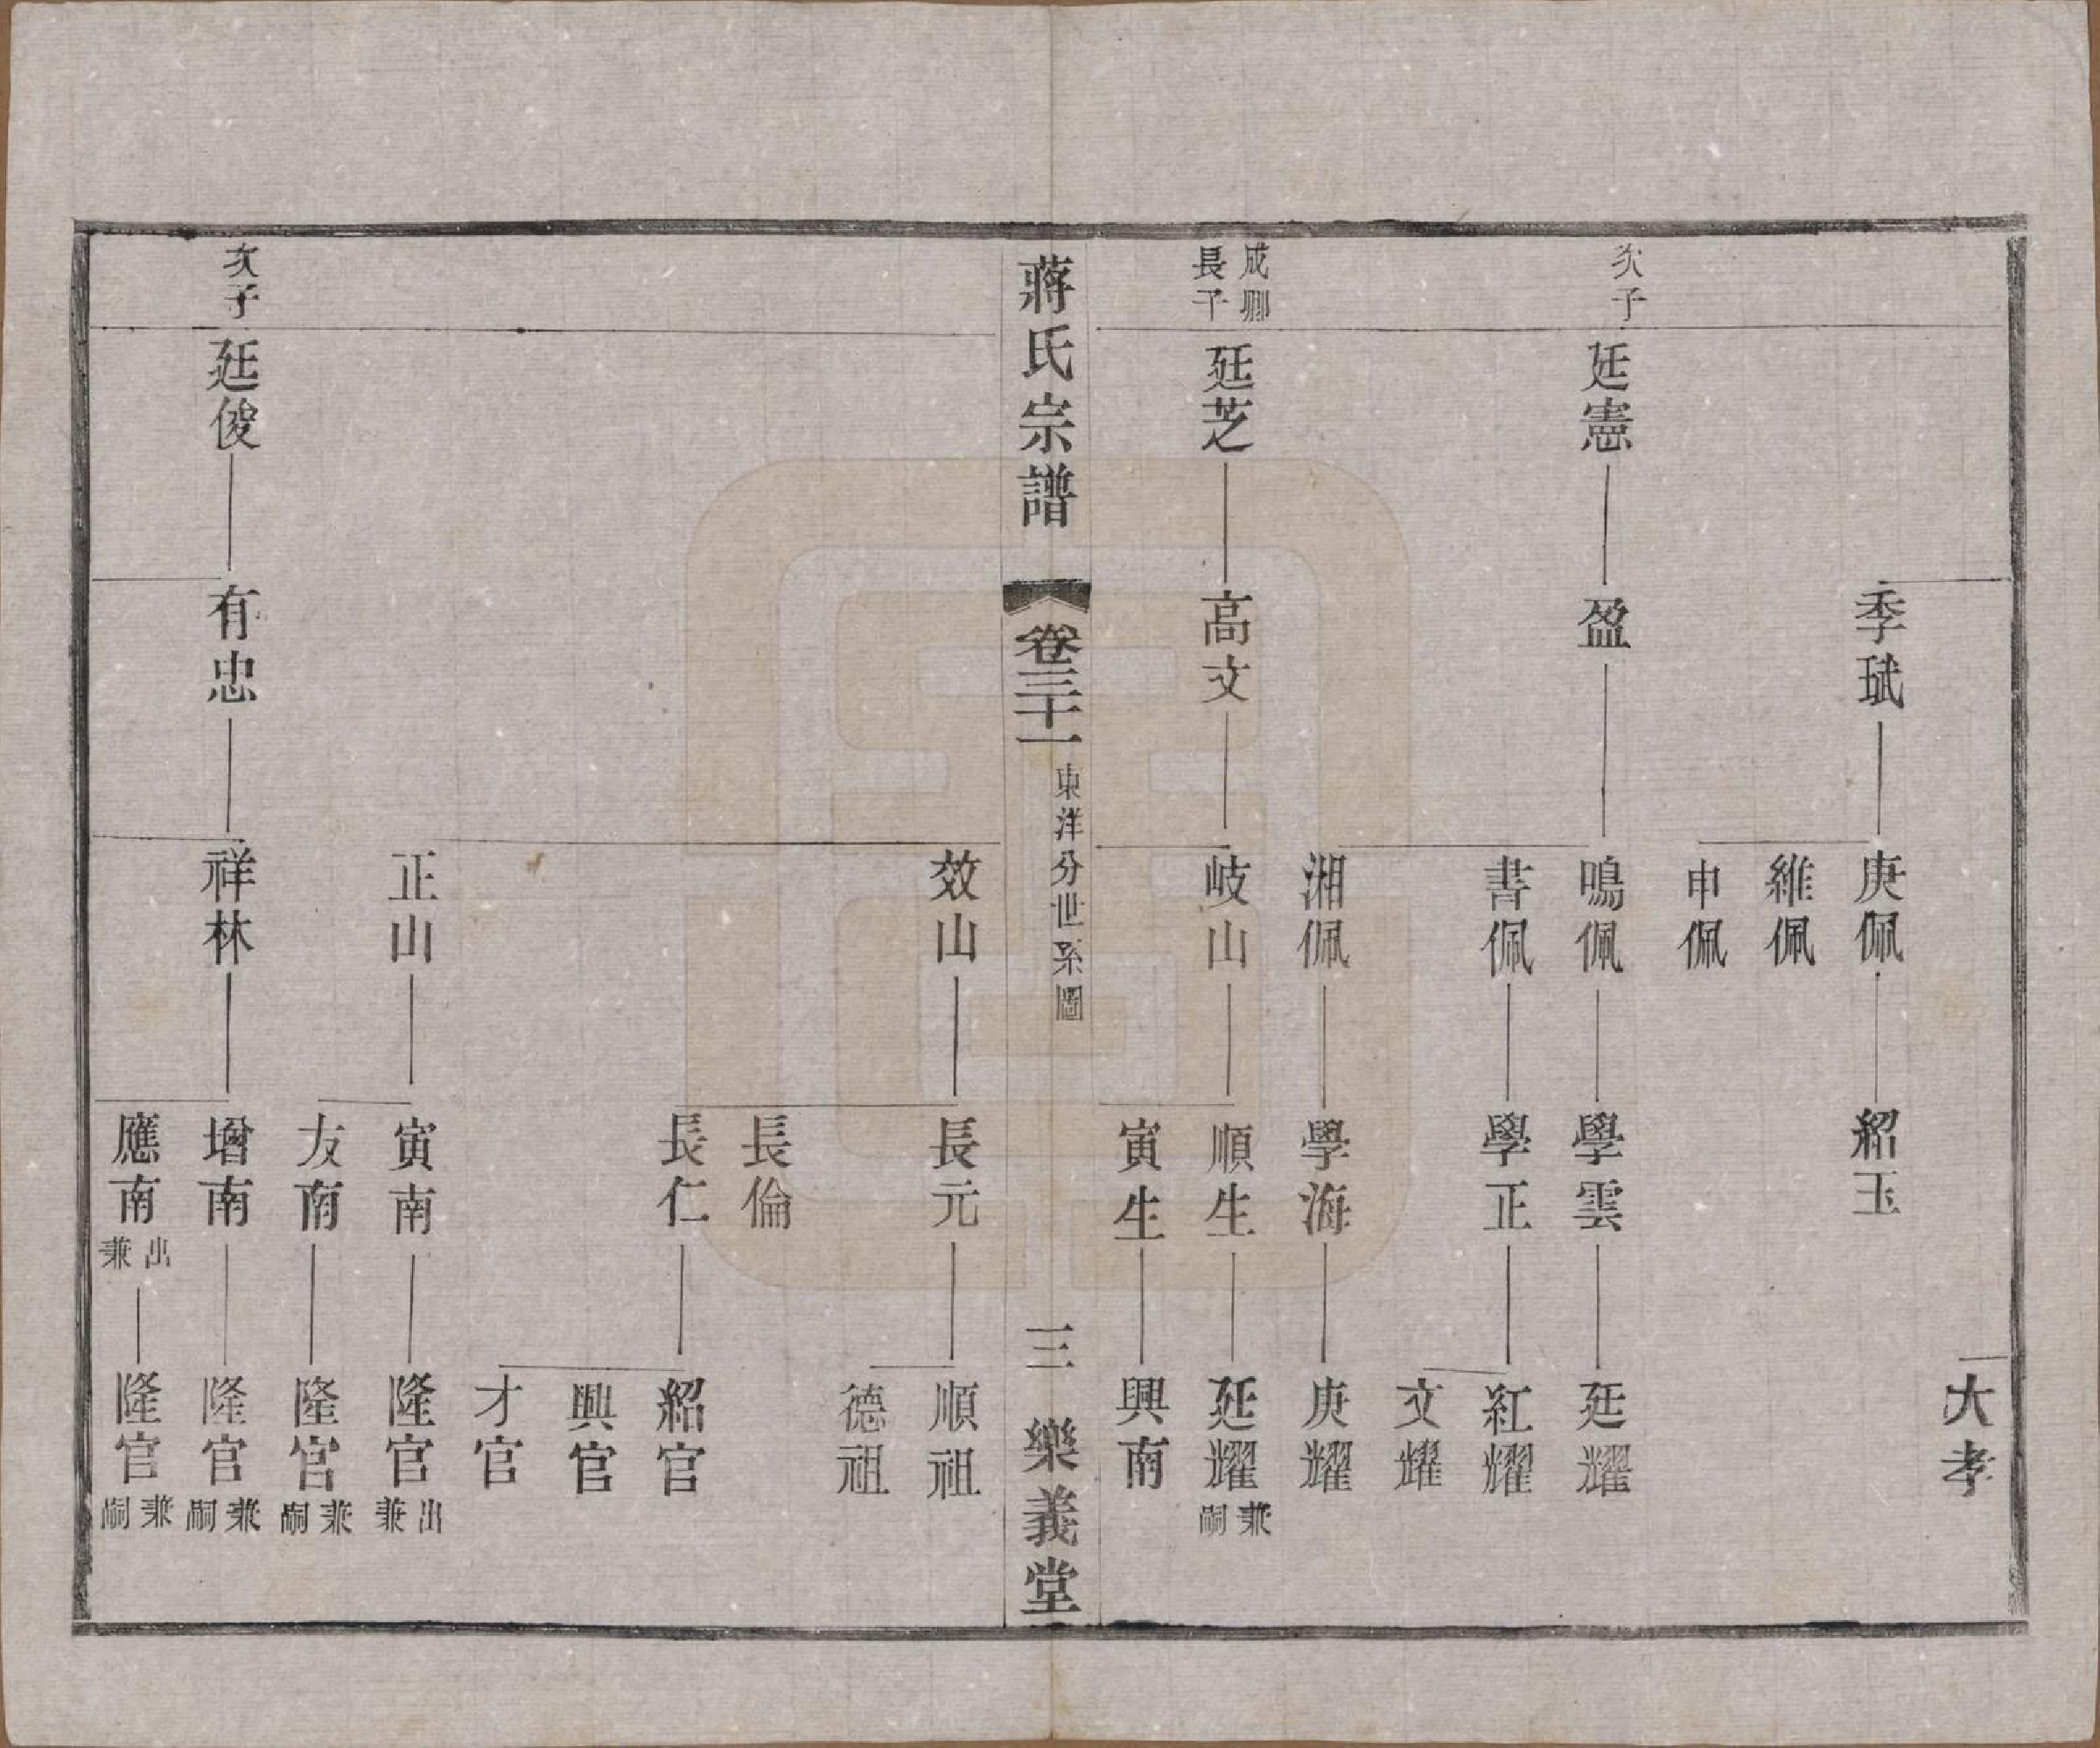 大孝
季珷
庚佩
紹玉
維佩
申佩
次子
廷憲
盈
鳴佩
學雲
廷耀
書佩
學正
紅耀
文耀
湘佩
學海
庚耀
成卿
長子
廷芝
高文
岐山
順生
廷耀
兼
嗣
寅生
興南
蔣氏宗譜
卷三十一
東洋分世系圖
三
樂義堂
效山
長元
順祖
德祖
長倫
長仁
紹官
興官
才官
正山
寅南
隆官
出
兼
友南
隆官
兼
嗣
次子
廷俊
有忠
祥林
增南
隆官
兼
嗣
應南
出
兼
隆官
兼
嗣